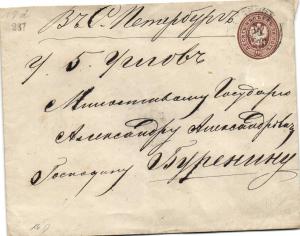 237
Въ С. Петербургъ
У 5 Угловъ
Милостивому Государю
Александру Александровичу
Господину Буренину